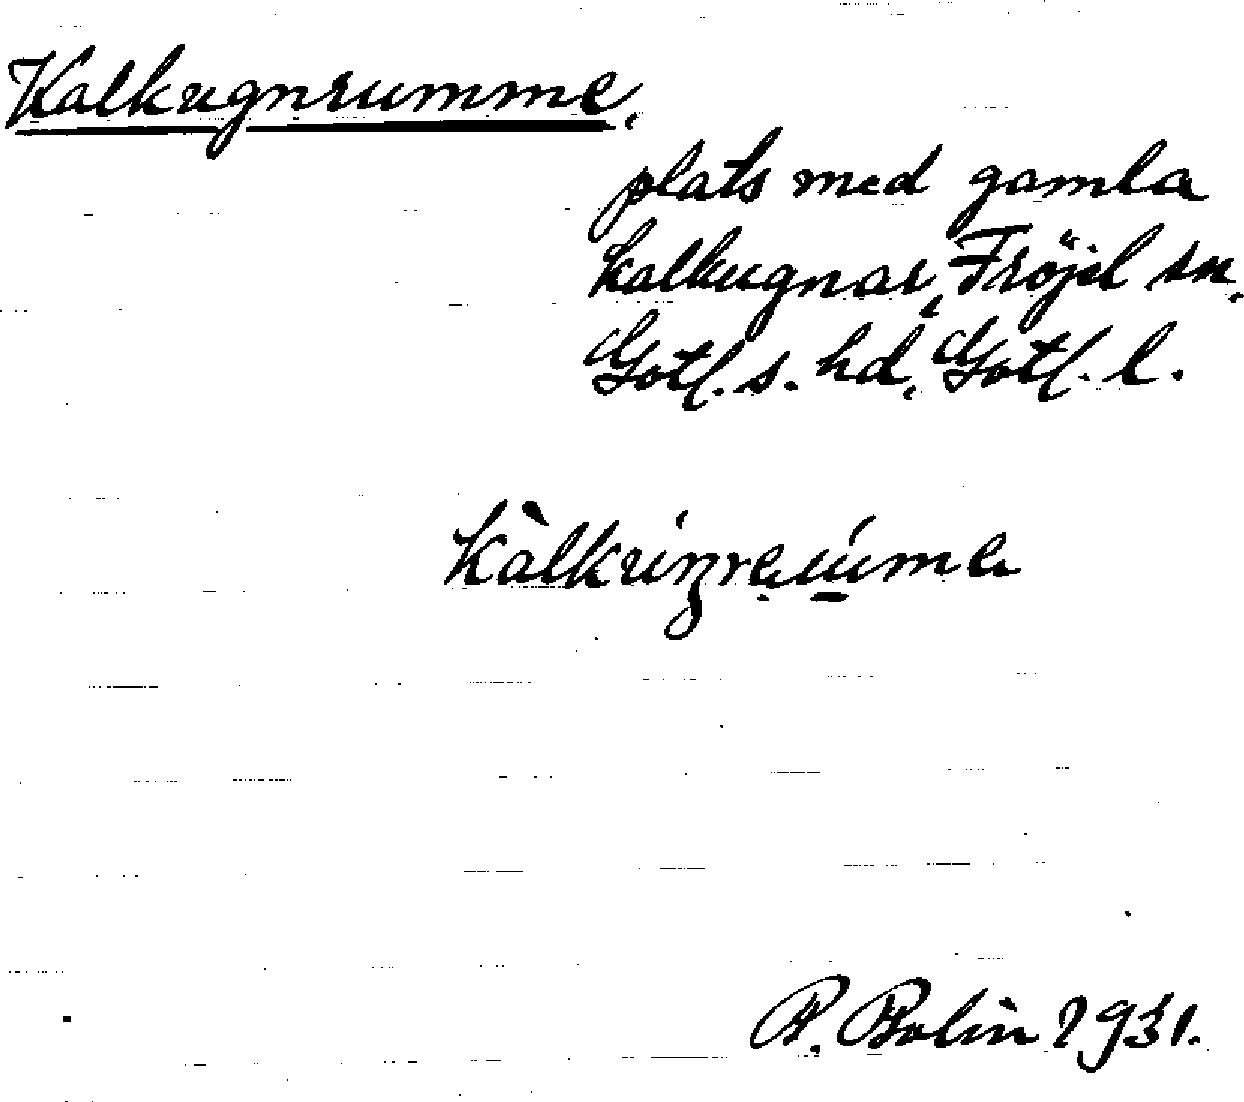 Kalkugnrumme,
plats med gamla
kalkugnar, Fröjel sn,
Gotl. s. hd, Gotl. l.
R. Bolin 1931.